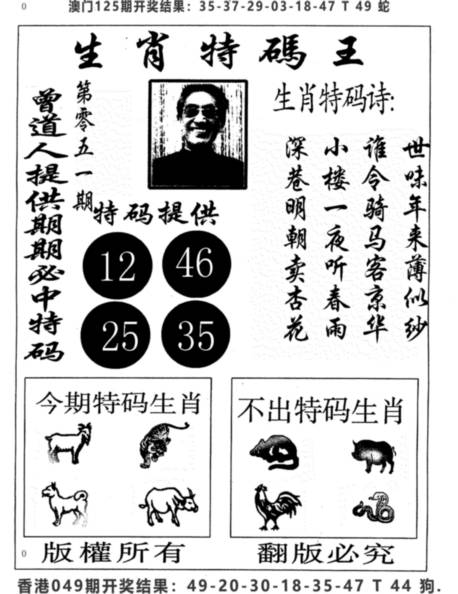 0
澳门125期开奖结果：35-37-29-03-18-47 T 49 蛇
生肖特碼王
曾道人提供期期必中特码
第零五一期
生肖特码诗:
世味年来薄似纱
谁令骑马客京华
小楼一夜听春雨
深巷明朝卖杏花
特码提供
12 46
25 35
今期特码生肖
不出特码生肖
0
版權所有 翻版必究
香港049期开奖结果：49-20-30-18-35-47 T 44 狗.